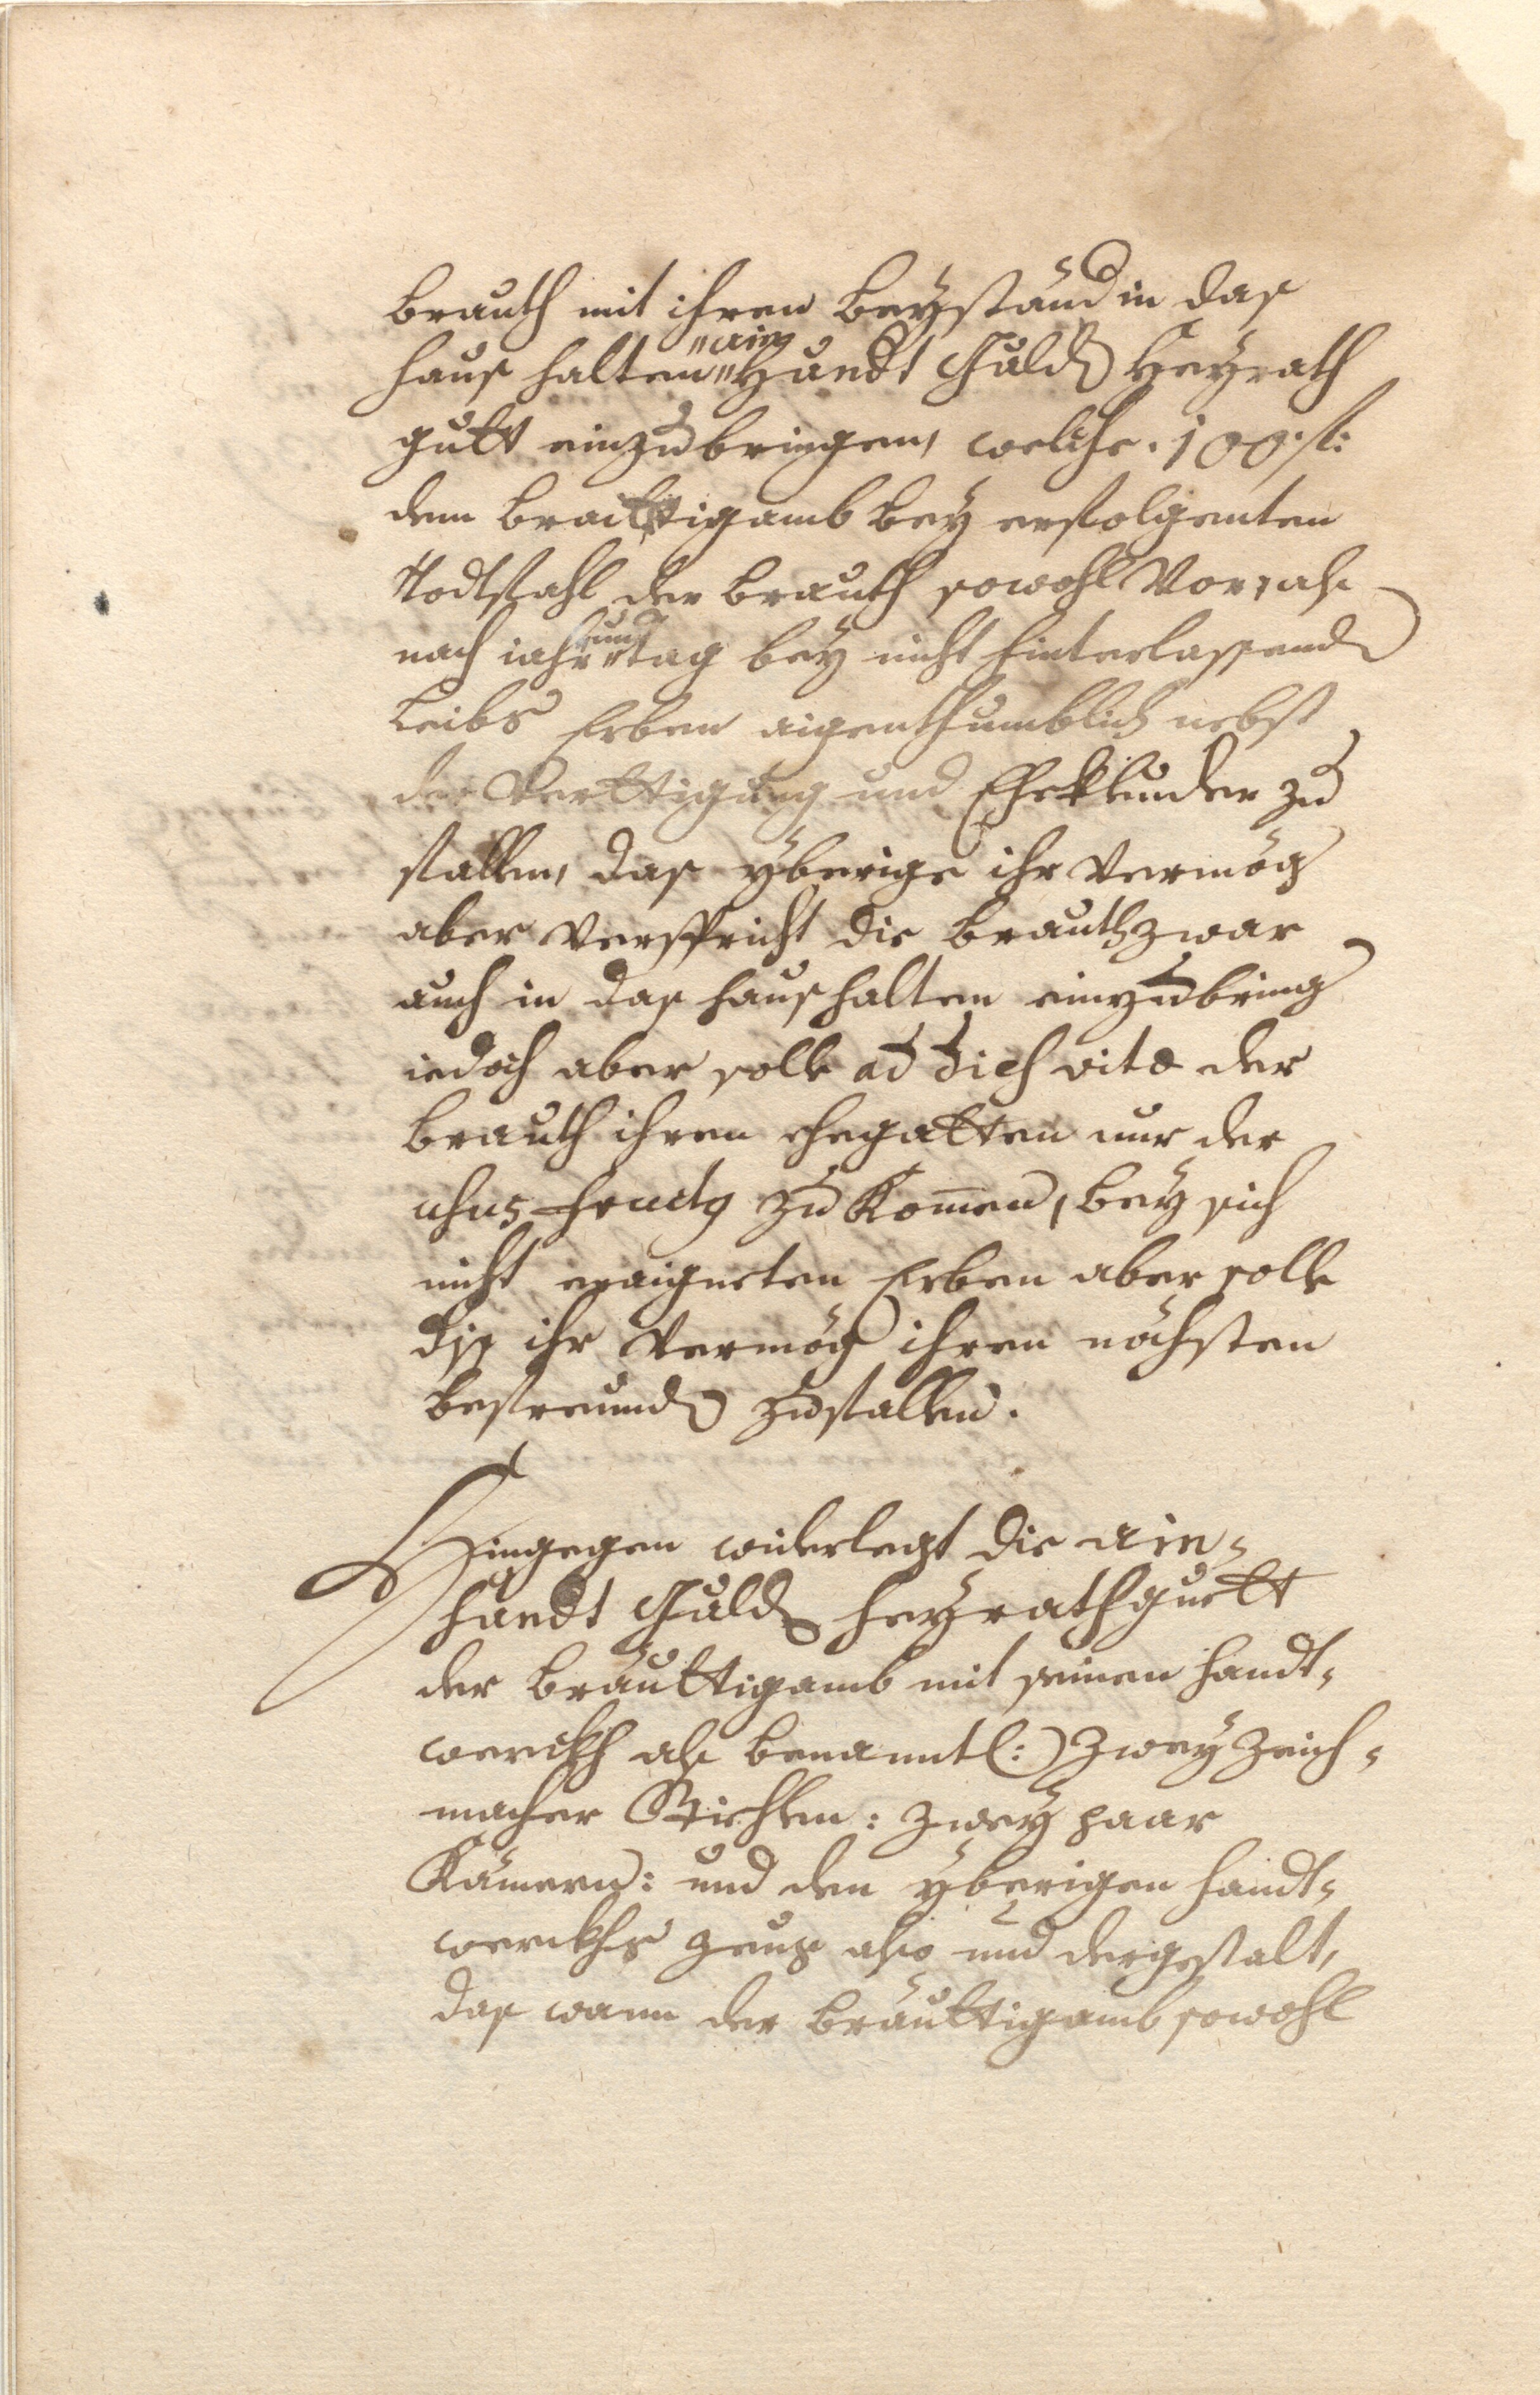 brauth mit ihren beyständ in das
haus halten "ain" Hundt Guld Heyrath
gutt einzubringen, welche 100 fl:
dem bräittigamb bey erfolgenten
Todtfahl der brauth sowohl Vor, als
nach iahr und tag bey nicht hinterlassend
Leibs Erben aigenthumblich nebst
der Verttigung und Ehekleinder zu
fallen, das yberige ihr Vermög
aber Verspricht die brauth zwar
auch in das haushalten einzubring
iedoch aber solle ad dies vitæ der
brauth ihren ehegatten nur der
usus fructus zu Komen, bey sich
nicht eraigneten Erben aber solle
dis ihr Vermög ihren nächsten
befreund zufallen.
Hingegen widerlegt die ain-
hundt Guld heyrathguett
der bräuttigamb mit seinen handt-
werckh als benanntl: zwey Zeich-
macher Stiehlen: zwey paar
Kämern: und den yberigen handt-
werckhs zeug also und dergestalt,
das wann der bräuttigamb sowohl